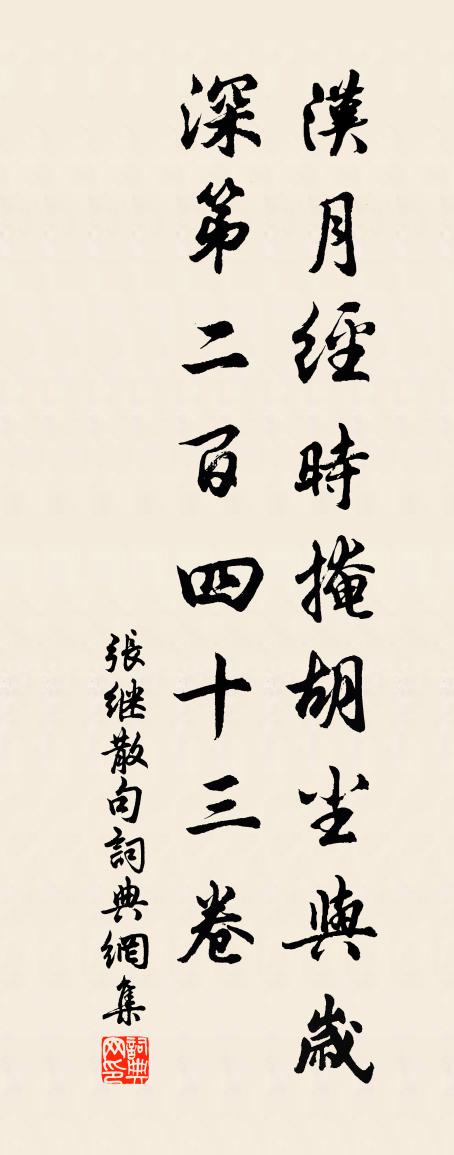 漢月經時掩胡尘與歲
深第二百四十三卷
張继散句詞典網集
詞典网印